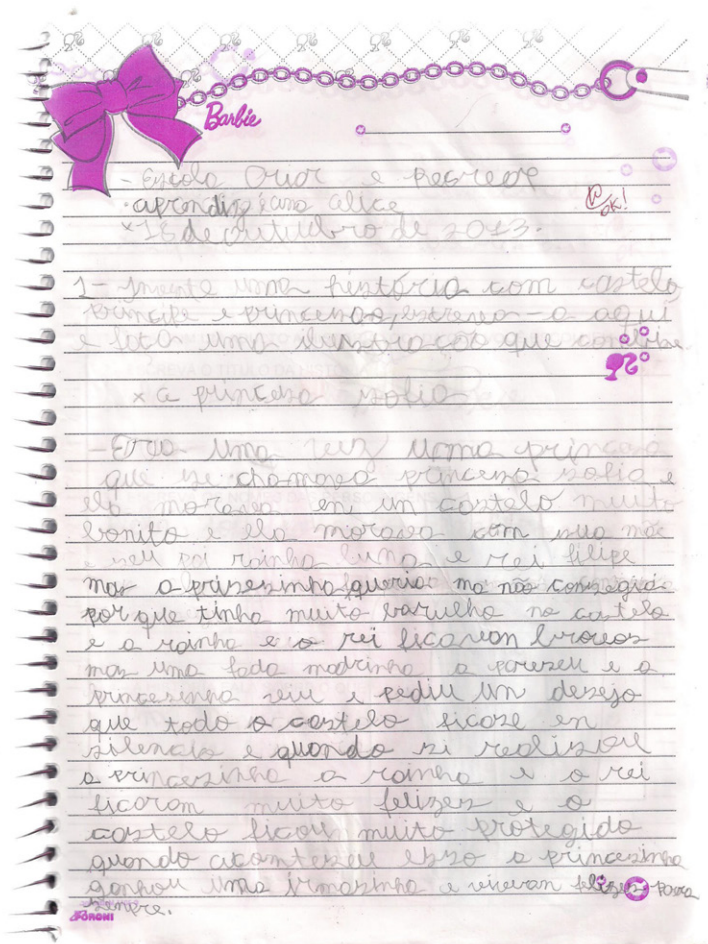 Barbie
- Escola Criar e Recrear
• aprendiz: ana alice
OK!
x 16 de outubro de 2013.
1- Invente uma história com castelo
principe e princesas, escreva-a aqui
e faça uma ilustração que combine
x a princesa sofia
- Era uma vez uma princesa
que se chamava princesa sofia e
ela morava en un castelo muito
bonito e ela morava com sua mãe
e seu pai rainha luna e rei filipe
mas a prisezinha queria ma não consegia
por que tinha muito barulho no castelo
e a rainha e o rei ficavan bravos
mas uma fada madrinha a pareseu e a
princesinha viu e pediu un desejo
que todo o castelo ficase en
silencio e quando si realizou
a princezinha a rainha e o rei
ficaram muito felizes e o
castelo ficou muito protegido
quando acomteseu isso a princesinha
ganhou uma irmãzinha e viveran felizes para
senpre.
FORONI